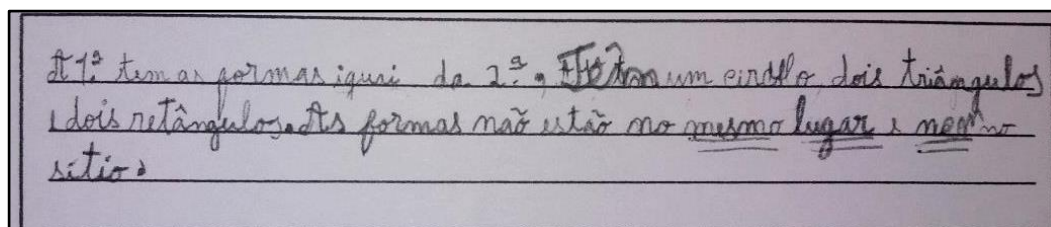 A 1.ª tem as formas iguai da 2.ª, têm um cirdflo, dois triângulos
e dois retângulos. As formas não estão no mesmo lugar e nem no
sítio.